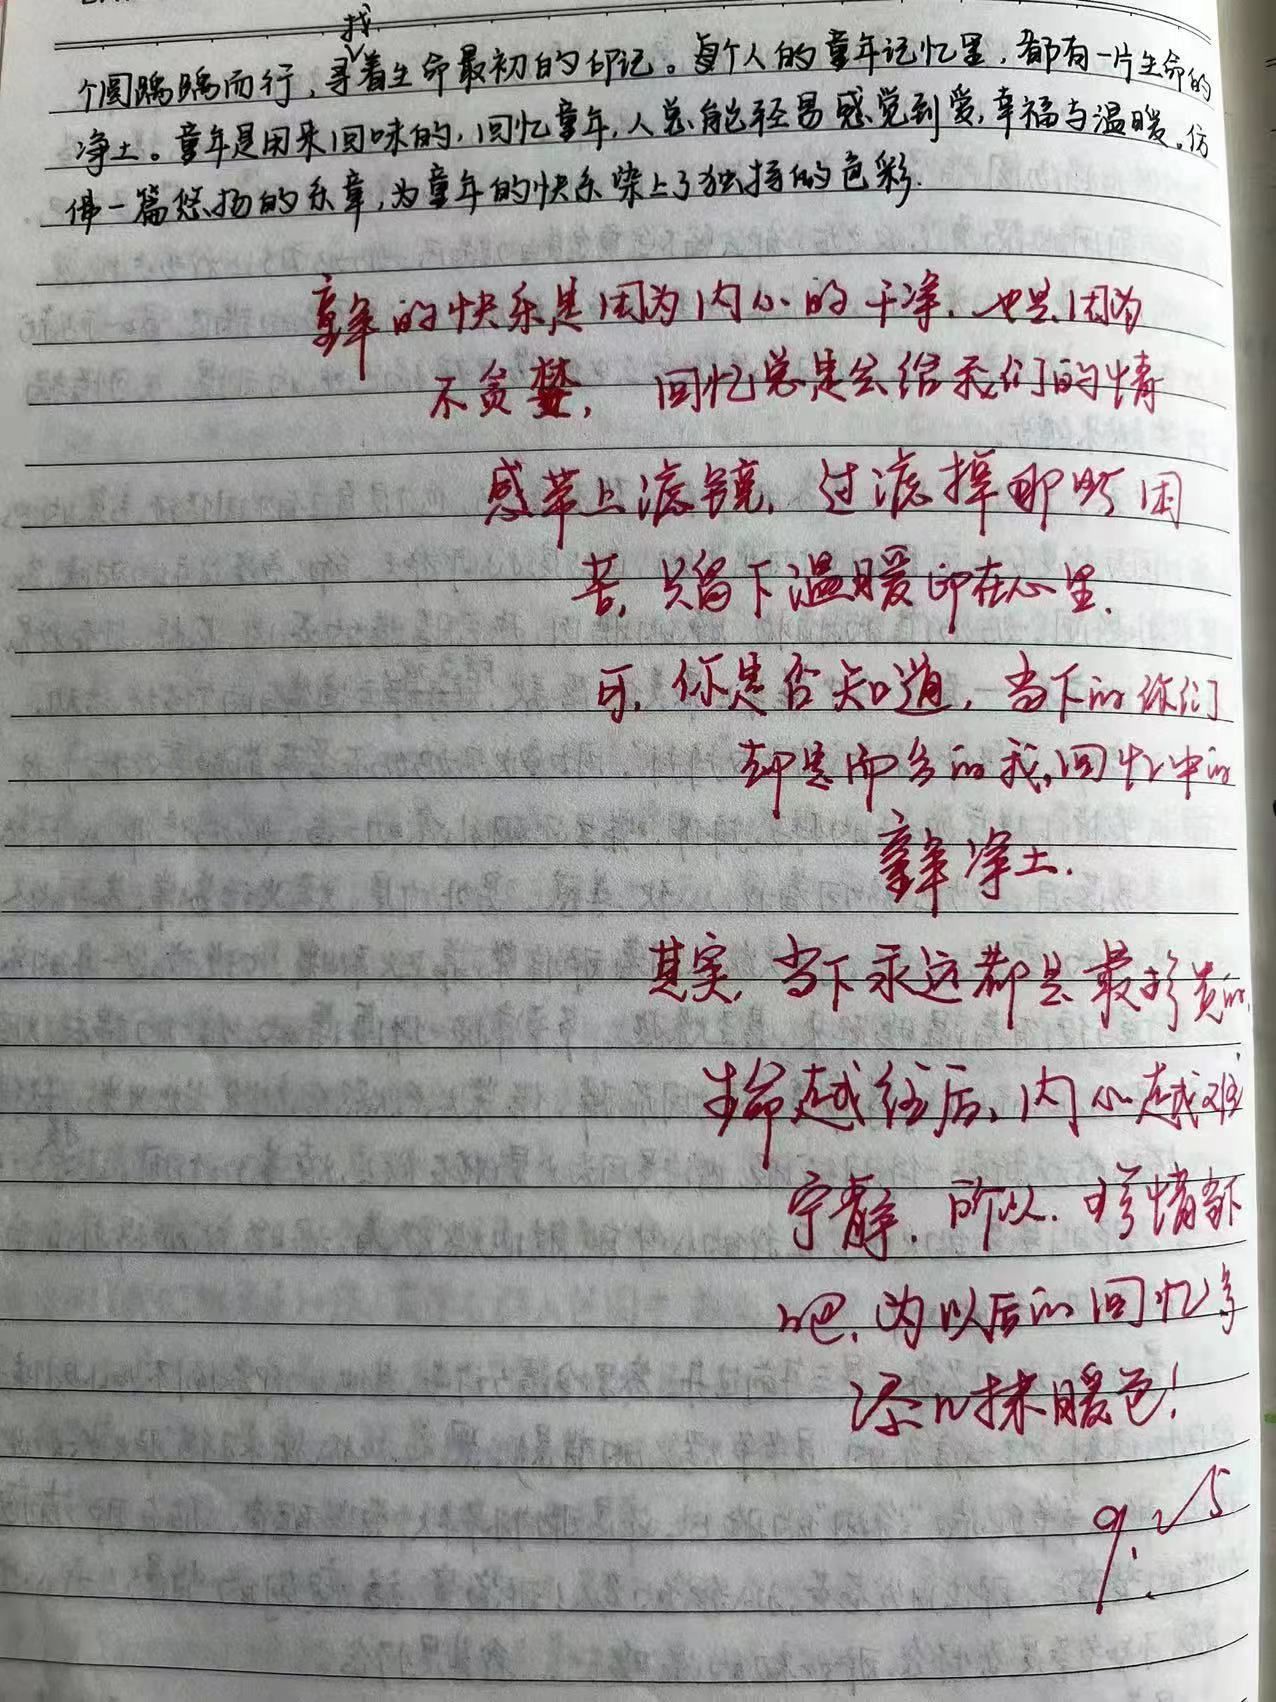 找
个圆踽踽而行，寻着生命最初的印记。每个人的童年记忆里，都有一片生命的
净土。童年是用来回味的，回忆童年，人总能轻易感觉到爱，幸福与温暖。仿
佛一篇悠扬的乐章，为童年的快乐染上了独特的色彩.
童年的快乐是因为内心的干净，也是因为
不贪婪，回忆总是会给我们的情
感带上滤镜，过滤掉那些困
苦，只留下温暖印在心里.
可，你是否知道，当下的你们
却是而今的我，回忆中的
童年净土.
其实，当下永远都是最珍贵的，
生命越往后，内心越难
宁静，所以，珍惜当下
吧，为以后的回忆多
添几抹暖色！
9.25